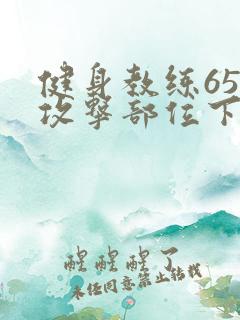 健身教练65
攻击部位下
醒醒醒了
未经同意禁止转载